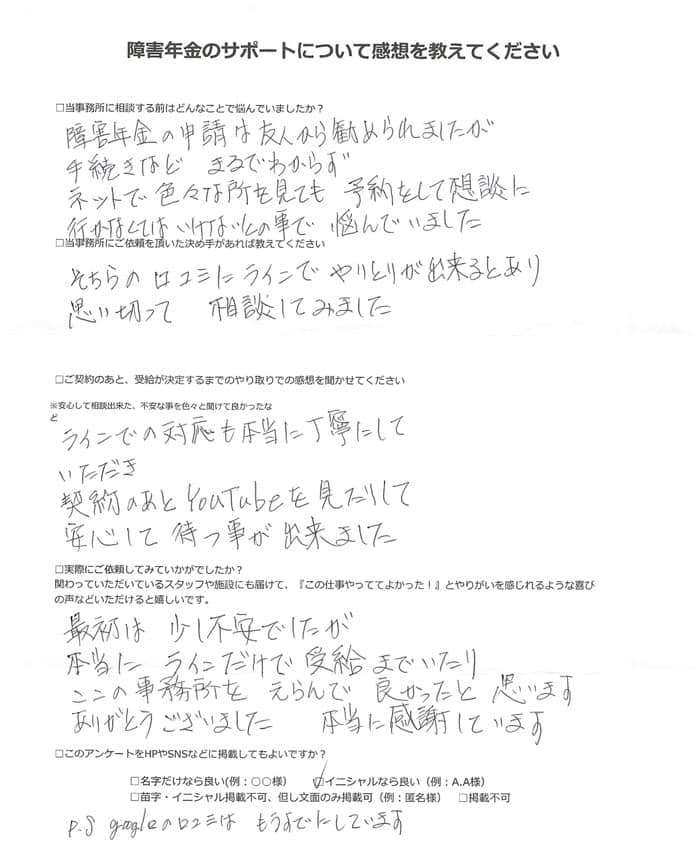 障害年金のサポートについて感想を教えてください
□当事務所に相談する前はどんなことで悩んでいましたか？
障害年金の申請は友人から勧められましたが
手続きなど まるでわからず
ネットで色々な所を見ても 予約をして想談に
行かなくてはいけないとの事で 悩んでいました
□当事務所にご依頼を頂いた決め手があれば教えてください
そちらの口コミにラインでやりとりが出来るとあり
思い切って 相談してみました
□ご契約のあと、受給が決定するまでのやり取りでの感想を聞かせてください
※安心して相談出来た、不安な事を色々と聞けて良かったな
ど
ラインでの対応も本当に丁寧にして
いただき
契約のあとYouTubeを見たりして
安心して 待つ事が出来ました
□実際にご依頼してみていかがでしたか？
関わっていただいているスタッフや施設にも届けて、『この仕事やっててよかった！』とやりがいを感じれるような喜び
の声などいただけると嬉しいです。
最初は 少し不安でしたが
本当に ラインだけで 受給までいたり
ここの事務所を えらんで 良かったと 思います
ありがとうございました 本当に感謝しています
□このアンケートをHPやSNSなどに掲載してもよいですか？
□名字だけなら良い(例：〇〇様） ☑イニシャルなら良い（例：A.A様）
□苗字・イニシャル掲載不可、但し文面のみ掲載可（例：匿名様） □掲載不可
P.S googleの口コミは もうすでにしています